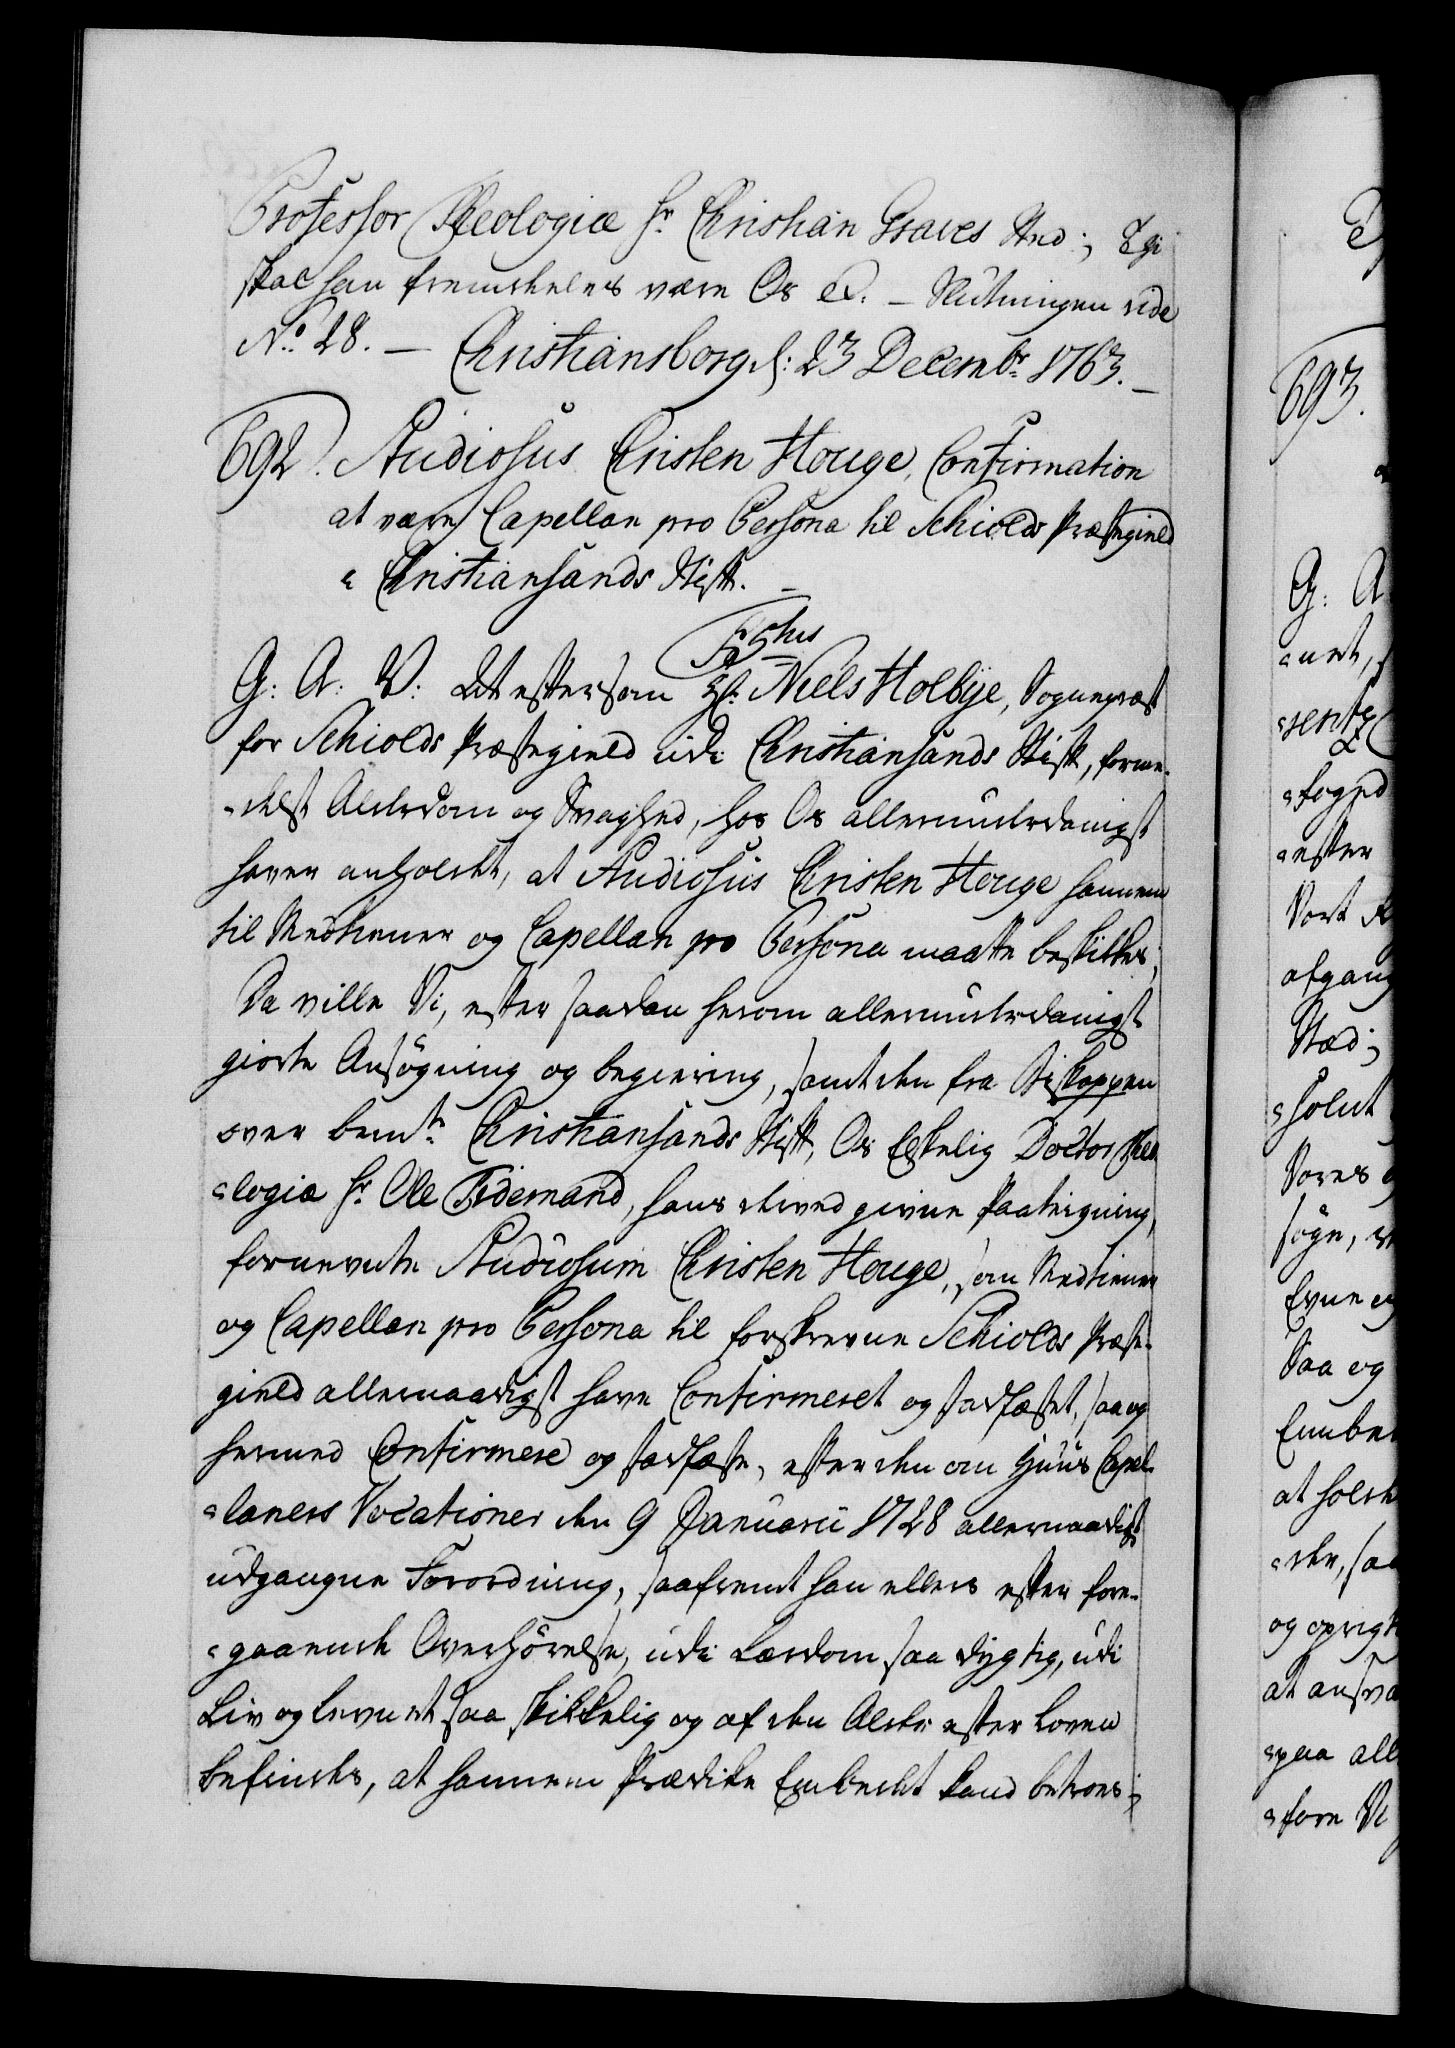 Professor Theologiæ Hr. Christian Graves Stæd;
skal han fremdeles være Os &. – Slutningen vide
No. 28. – Christiansborg d: 23 Decembr. 1763. –
692. Studiosus Christen Houge, Confirmation
at være Capellan pro Persona til Schiolds Præstegield
i Christiansands Stift. –
G: A: V: at eftersom Hr. Niels Holbÿe, Sognepræst
for Schiolds Præstegield udi Christiansands Stift, forme-
-delst Alderdom og Svaghed, hos Os allerunderdanigst
haver anholdet, at Studiosus Christen Houge hannem
til Medtiener og Capellan pro Persona maatte beskikkes,
Da ville Vi, efter saadan herom allerunderdanigst
giorte Ansøgning og begiering, samt den fra Biskoppen
over bemte. Christiansands Stift, Os Elskelig Doctor Theo-
-logiæ Hr. Ole Tidemand, hans derved givne Paategning,
fornevnte Studiosum Christen Houge, som Medtiener
og Capellan pro Persona til forskrevne Schiolds Præste-
gield allernaadigst have Confirmeret og stadfæstet, saa og
hermed Confirmere og stadfæste, efter den om Huus Capel-
-laners Vocationer den 9 Januarii 1728 allernaadigst
udgangne Forordning, saafremt han ellers efter fore-
-gaaende Overhørelse, udi Lærdom saa dygtig, udi
Liv og Levnet saa skikkelig og af den Alder efter Loven
befindes, at hannem Prædike Embedet kand betroes;
693.
G: A
-net,
-sente
-foged
-efter
Vort
afgang
Stæd;
-holdt
Vores
søge,
Evne og
Saa og
Embe
at holde
-de, saa
og oprigt
at ansva
-paa all
-fore Vi